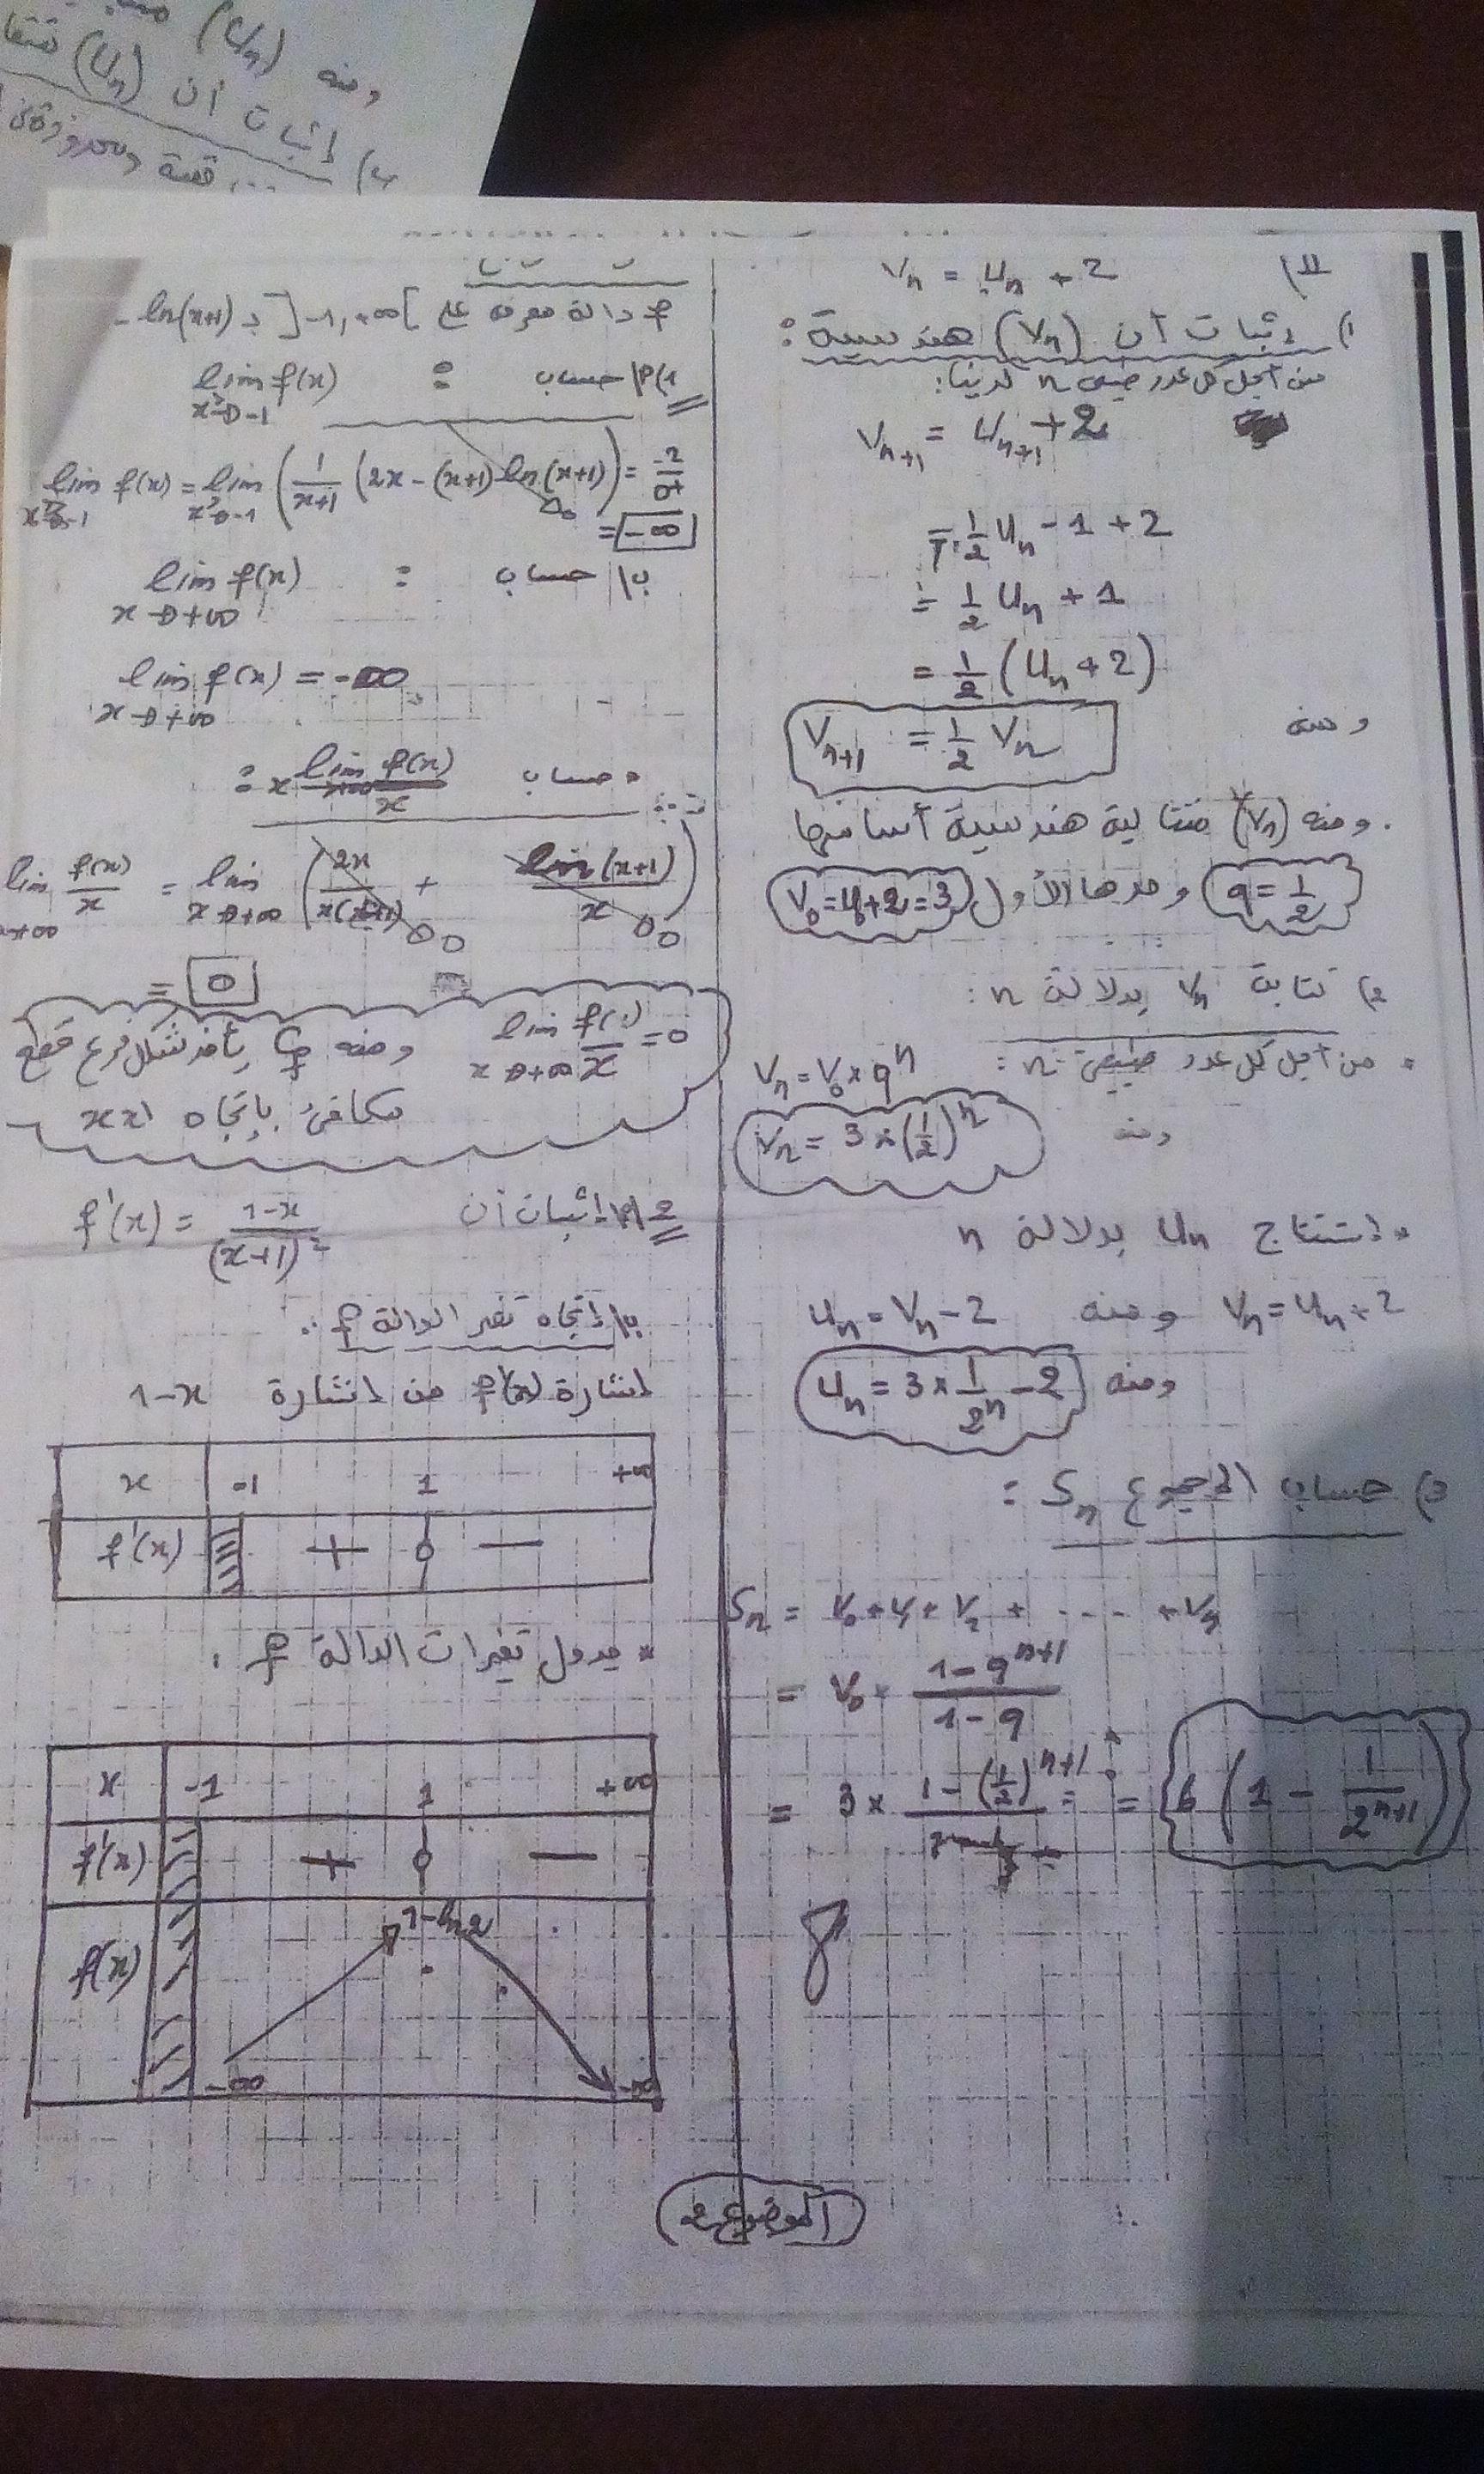 ومنه (Un)
إثبات أن (Un)
II) Vn = Un + 2
1) إثبات أن (Vn) هندسية :
من أجل كل عدد طبيعي n لدينا :
Vn+1 = Un+1 + 2
= 1/2 Un - 1 + 2
= 1/2 Un + 1
= 1/2 (Un + 2)
ومنه Vn+1 = 1/2 Vn
ومنه (Vn) متتالية هندسية أساسها
q = 1/2 وحدها الأول V0 = U0 + 2 = 3
2) كتابة Vn بدلالة n :
من أجل كل عدد طبيعي n : Vn = V0 × q^n
ومنه Vn = 3 × (1/2)^n
• استنتاج Un بدلالة n
Vn = Un + 2 ومنه Un = Vn - 2
ومنه Un = 3 × 1/2^n - 2
3) حساب المجموع Sn :
Sn = V0 + V1 + V2 + .... + Vn
= V0 × (1 - q^(n+1))/(1 - q)
= 3 × (1 - (1/2)^(n+1)) = 6 (1 - 1/2^(n+1))
f دالة معرفة على ]-1, +∞[ بـ ln(x+1) -
1) أ) حساب : lim f(x)
x →> -1
lim f(x) = lim (1/(x+1) (2x - (x+1) ln(x+1)) = -2/0+
x →> -1 x →> -1 0
= -∞
ب) حساب : lim f(x)
x → +∞
lim f(x) = -∞
x → +∞
• حساب lim f(x)/x :
lim f(x)/x = lim (2x/(x(x+1)) + ln(x+1)/x)
x → +∞ 0 0
= 0
lim f(x)/x = 0 ومنه Cf يأخذ شكل فرع قطع
x → +∞
مكافئ باتجاه xx'
2) أ) إثبات أن f'(x) = (1-x)/(x+1)^2
ب) إتجاه تغير الدالة f :
إشارة f'(x) من إشارة 1-x
x -1 1 +∞
f'(x) + 0 −
• جدول تغيرات الدالة f .
x -1 1 +∞
f'(x) + 0 −
1-ln2
f(x)
-∞ -∞
الموضوع 2